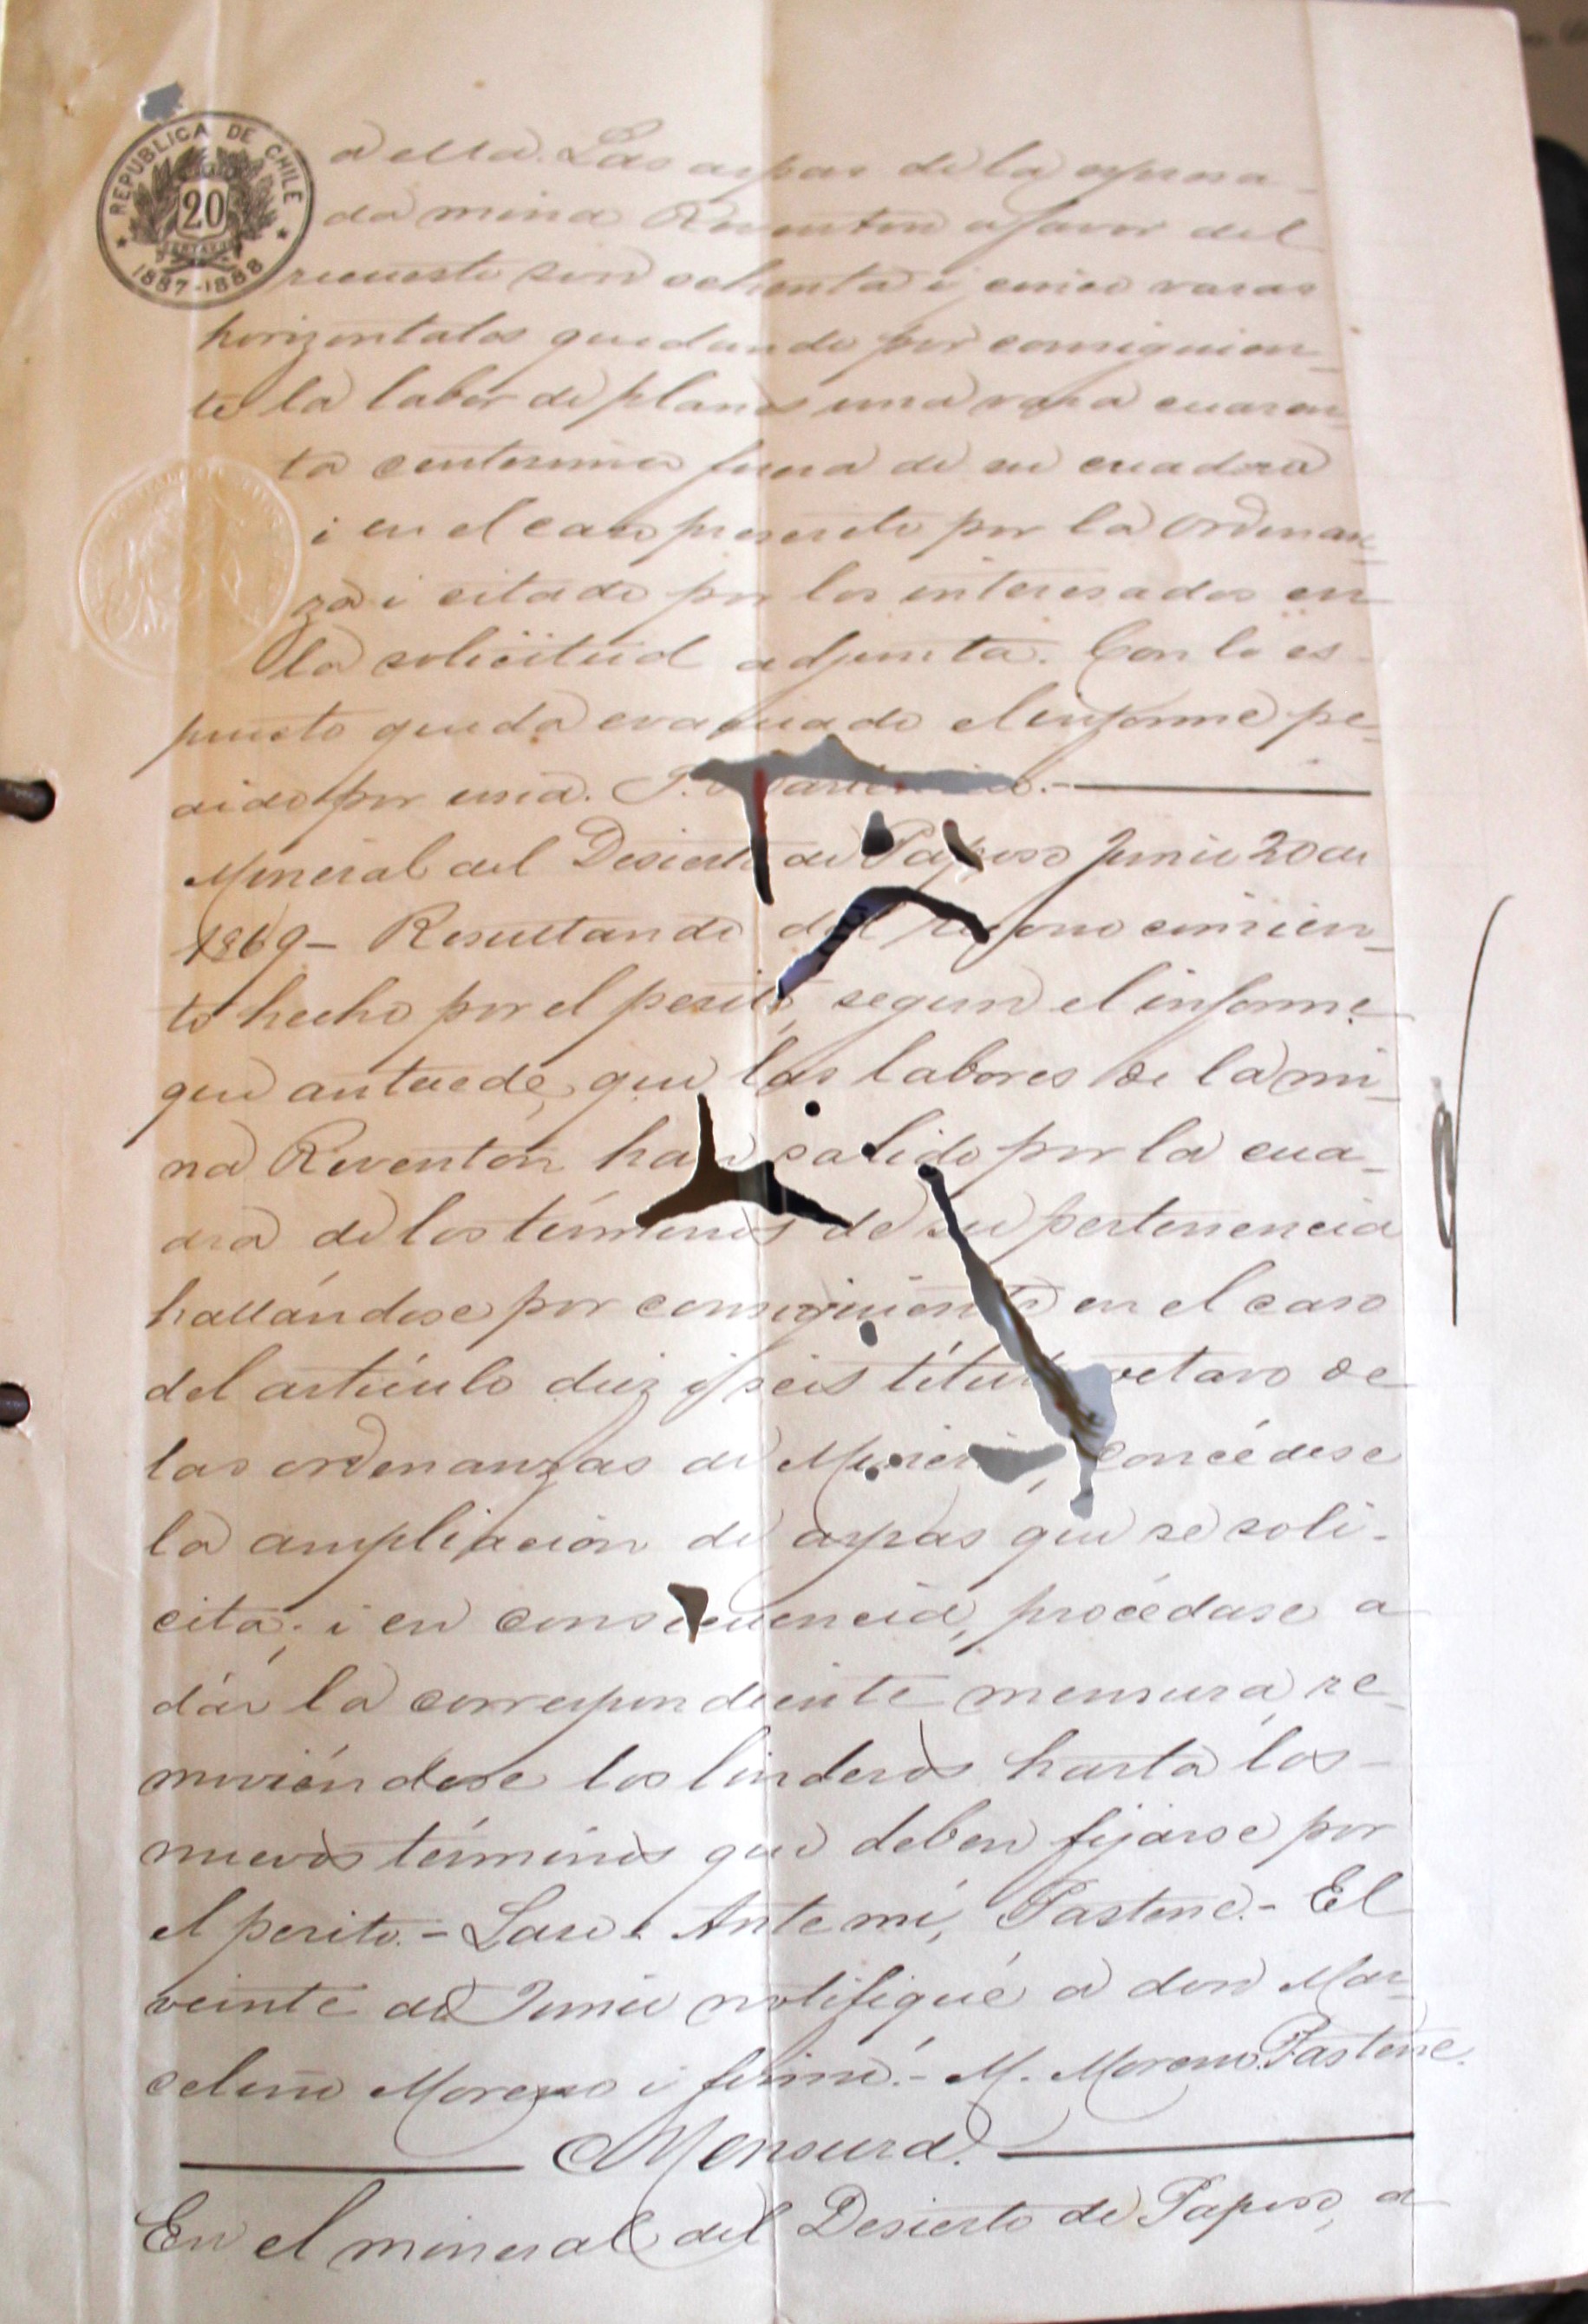 REPUBLICA DE CHILE
20
CENTAVOS
1887-1888
a ella. Las aspas de la espresa-
da mina Reventon a favor del
recuesto son ochenta i cinco varas
horizontales quedando por consiguien-
te la labor de planes una vara cuaren-
ta centesimas fuera de su cuadra
i en el caso prescrito por la ordenan-
za i citado por los interesados en
la solicitud adjunta. Con lo es-
puesto queda evacuado el informe pe-
dido por usia. P.
Mineral del Desierto de Paposo Junio 20 de
1869- Resultando del reconocimien-
to hecho por el perito, segun el informe
que antecede, que las labores de la mi-
na Reventon han salido por la cua-
dra de los términos de su pertenencia
hallándose por consiguiente en el caso
del artículo diez i seis título octavo de
las ordenanzas de Minería, concédese
la ampliacion de aspas que se soli-
cita; i en consecuencia, procédase a
dár la correspondiente mensura, re-
moviéndose los linderos hasta los
nuevos términos que deben fijarse por
el perito.- Laso. Ante mí, Pastene.- El
veinte de Junio notifiqué a don Mar-
celino Moreno i firmó.- M. Moreno. Pastene.
Mensura.
En el mineral del Desierto de Paposo, a